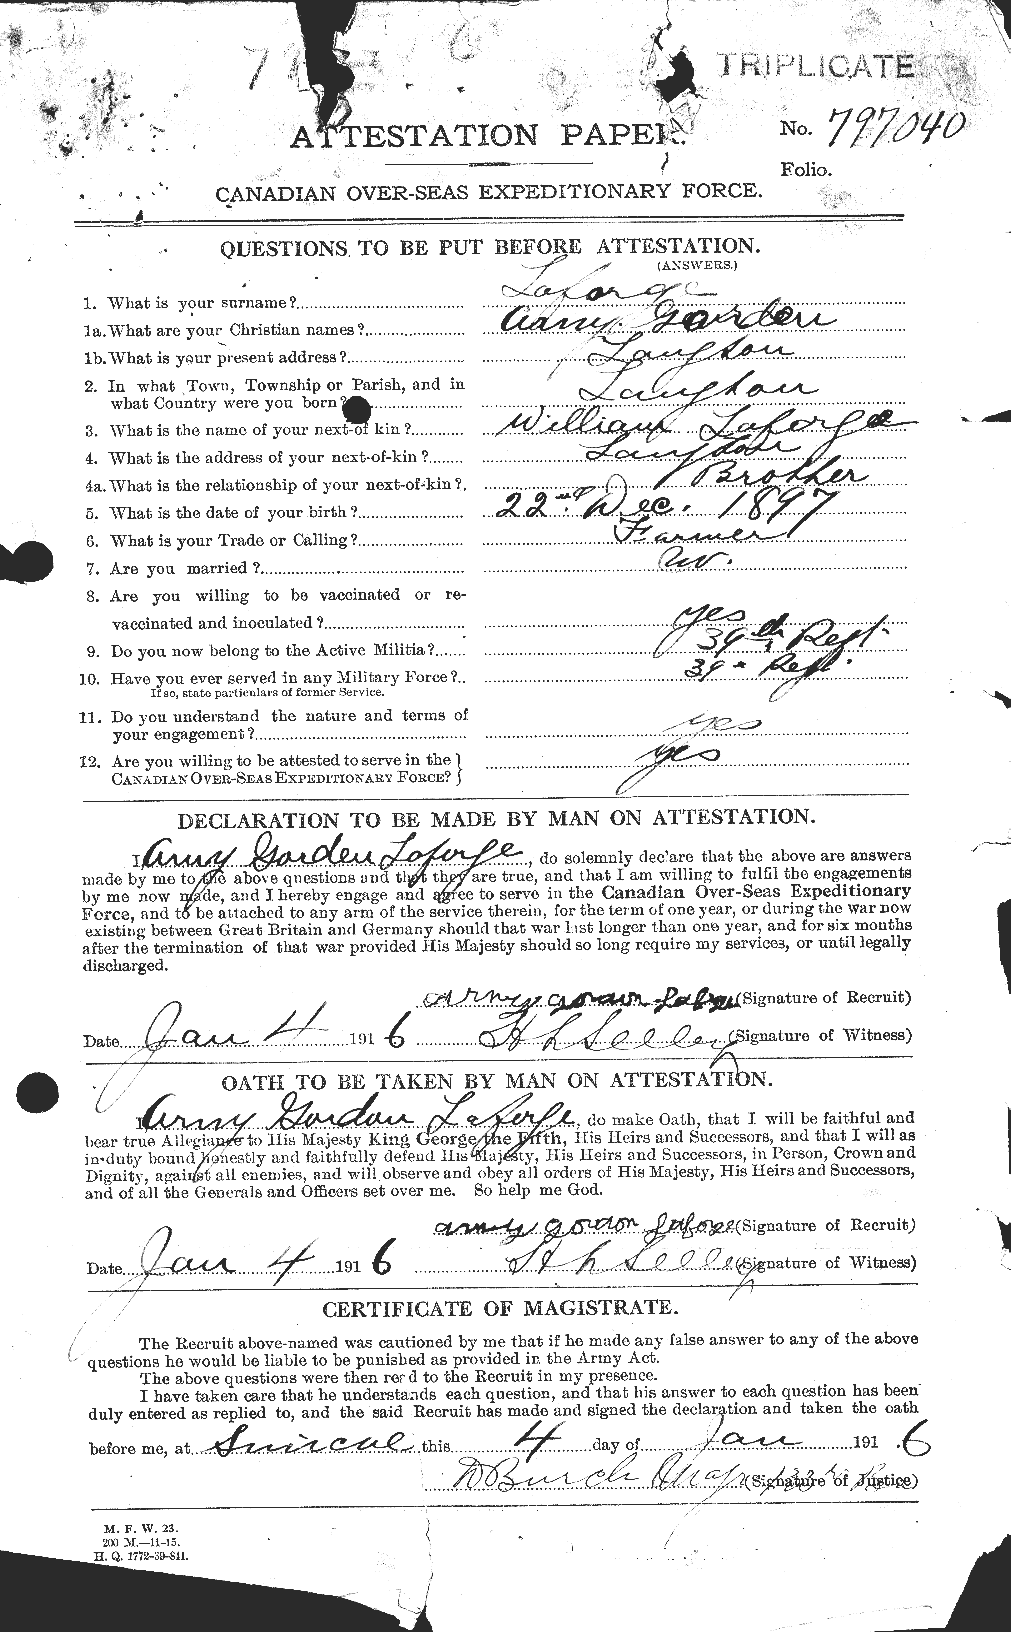 TRIPLICATE
ATTESTATION PAPER.
No. 797040
Folio.
CANADIAN OVER-SEAS EXPEDITIONARY FORCE.
QUESTIONS TO BE PUT BEFORE ATTESTATION.
(ANSWERS.)
1. What is your surname? Laforge
1a. What are your Christian names? Army Gorden
1b. What is your present address? Langton
2. In what Town, Township or Parish, and in
what Country were you born? Langton
3. What is the name of your next-of kin? William Laforge
4. What is the address of your next-of-kin? Langton
4a. What is the relationship of your next-of-kin? Brother
5. What is the date of your birth? 22nd Dec. 1897
6. What is your Trade or Calling? Farmer
7. Are you married? no.
8. Are you willing to be vaccinated or re-
vaccinated and inoculated? yes
9. Do you now belong to the Active Militia? 39th Regt.
10. Have you ever served in any Military Force? 39" Regt.
If so, state particulars of former Service.
11. Do you understand the nature and terms of
your engagement? yes
12. Are you willing to be attested to serve in the
CANADIAN OVER-SEAS EXPEDITIONARY FORCE? yes
DECLARATION TO BE MADE BY MAN ON ATTESTATION.
I, Army Gorden Laforge, do solemnly declare that the above are answers
made by me to the above questions and that they are true, and that I am willing to fulfil the engagements
by me now made, and I hereby engage and agree to serve in the Canadian Over-Seas Expeditionary
Force, and to be attached to any arm of the service therein, for the term of one year, or during the war now
existing between Great Britain and Germany should that war last longer than one year, and for six months
after the termination of that war provided His Majesty should so long require my services, or until legally
discharged.
army gordon Laforge (Signature of Recruit)
Date Jan 4 1916 H L Seeley (Signature of Witness)
OATH TO BE TAKEN BY MAN ON ATTESTATION.
I, Army Gordon Laforge, do make Oath, that I will be faithful and
bear true Allegiance to His Majesty King George the Fifth, His Heirs and Successors, and that I will as
in duty bound honestly and faithfully defend His Majesty, His Heirs and Successors, in Person, Crown and
Dignity, against all enemies, and will observe and obey all orders of His Majesty, His Heirs and Successors,
and of all the Generals and Officers set over me. So help me God.
army gordon Laforge (Signature of Recruit)
Date Jan 4 1916 H L Seeley (Signature of Witness)
CERTIFICATE OF MAGISTRATE.
The Recruit above-named was cautioned by me that if he made any false answer to any of the above
questions he would be liable to be punished as provided in the Army Act.
The above questions were then read to the Recruit in my presence.
I have taken care that he understands each question, and that his answer to each question has been
duly entered as replied to, and the said Recruit has made and signed the declaration and taken the oath
before me, at Simcoe this 4 day of Jan 1916
D Burch Major 133rd (Signature of Justice)
M. F. W. 23.
200 M.—11-15.
H. Q. 1772-39-841.